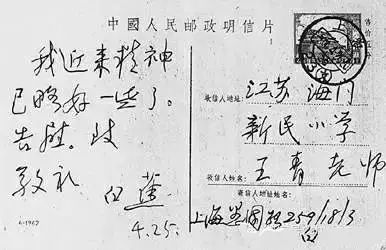 中國人民邮政明信片
我近来精神
已略好一些了。
告慰。此
敬礼
白蕉
4.25.
售价
收信人地址:
江苏海门
新民小学
收信人姓名:
王青老师
寄信人地址姓名:
上海 259/18/3
白